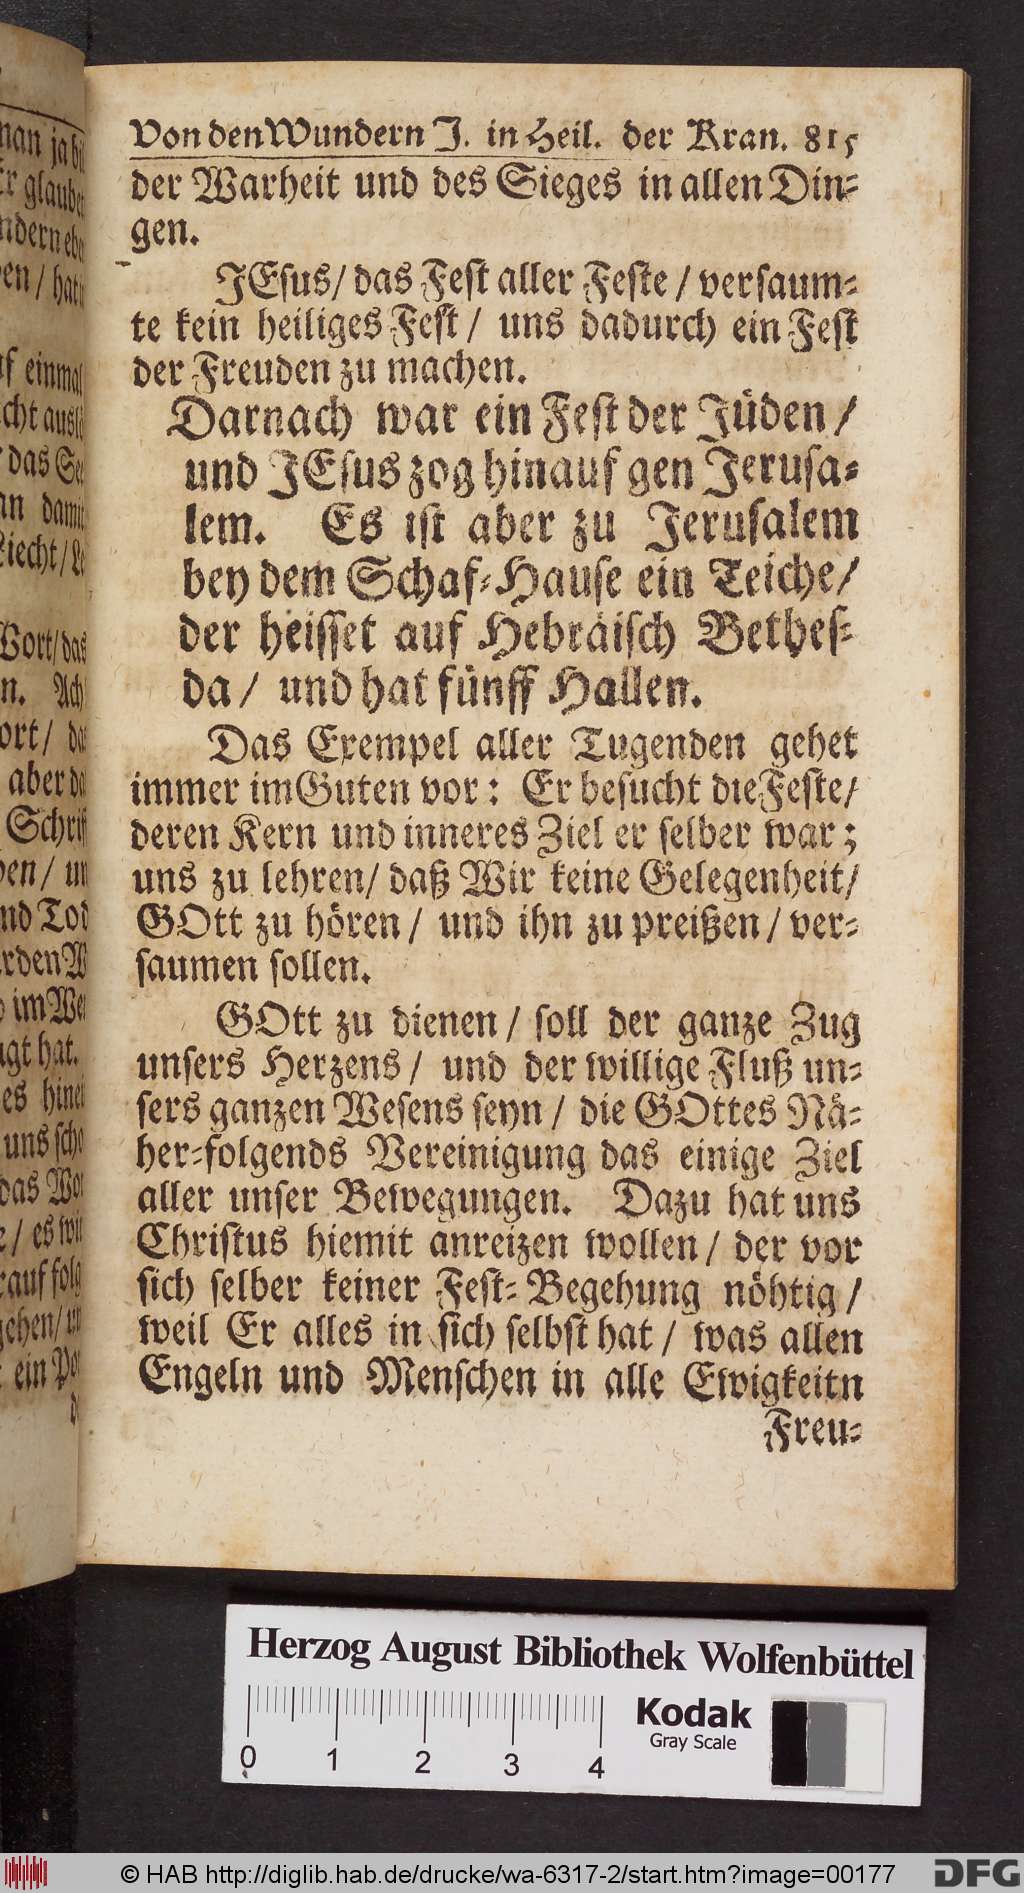 Von den Wundern J. in Heil. der Kran. 815
der Warheit und des Sieges in allen Din-
gen.
JEsus / das Fest aller Feste / versaum-
te kein heiliges Fest / uns dadurch ein Fest
der Freuden zu machen.
Darnach war ein Fest der Jüden /
und JEsus zog hinauf gen Jerusa-
lem. Es ist aber zu Jerusalem
bey dem Schaf-Hause ein Teiche /
der heisset auf Hebräisch Bethes-
da / und hat fünff Hallen.
Das Exempel aller Tugenden gehet
immer im Guten vor : Er besucht die Feste /
deren Kern und inneres Ziel er selber war ;
uns zu lehren / daß Wir keine Gelegenheit /
GOtt zu hören / und ihn zu preißen / ver-
saumen sollen.
GOtt zu dienen / soll der ganze Zug
unsers Herzens / und der willige Fluß un-
sers ganzen Wesens seyn / die GOttes Nä-
her-folgends Vereinigung das einige Ziel
aller unser Bewegungen. Dazu hat uns
Christus hiemit anreizen wollen / der vor
sich selber keiner Fest-Begehung nöhtig /
weil Er alles in sich selbst hat / was allen
Engeln und Menschen in alle Ewigkeitn
Freu-
Herzog August Bibliothek Wolfenbüttel
Kodak
Gray Scale
0 1 2 3 4
© HAB http://diglib.hab.de/drucke/wa-6317-2/start.htm?image=00177
DFG